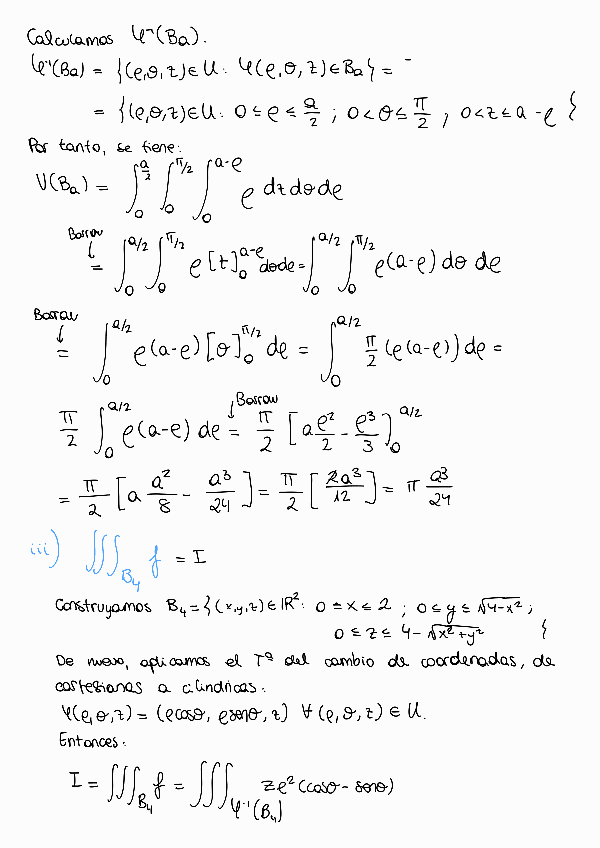 Calculamos φ⁻¹(Ba).
φ⁻¹(Ba) = {(ρ,θ,z)∈U: φ(ρ,θ,z)∈Ba} =
= {(ρ,θ,z)∈U: 0≤ρ≤a/2 ; 0<θ≤π/2 ; 0<z≤a-ρ}
Por tanto, se tiene:
V(Ba) = ∫₀^{a/2} ∫₀^{π/2} ∫₀^{a-ρ} ρ dz dθ dρ
Barrow
= ∫₀^{a/2} ∫₀^{π/2} ρ [z]₀^{a-ρ} dθdρ = ∫₀^{a/2} ∫₀^{π/2} ρ(a-ρ) dθ dρ
Barrow
= ∫₀^{a/2} ρ(a-ρ) [θ]₀^{π/2} dρ = ∫₀^{a/2} π/2 (ρ(a-ρ)) dρ =
Barrow
π/2 ∫₀^{a/2} ρ(a-ρ) dρ = π/2 [a ρ²/2 - ρ³/3]₀^{a/2}
= π/2 [a a²/8 - a³/24] = π/2 [2a³/12] = π a³/24
iii) ∭_{B₄} f = I
Construyamos B₄ = {(x,y,z)∈ℝ²: 0≤x≤2 ; 0≤y≤√(4-x²) ;
0≤z≤4-√(x²+y²) }
De nuevo, aplicamos el Tª del cambio de coordenadas, de
cartesianas a cilíndricas:
φ(ρ,θ,z) = (ρcosθ, ρsenθ, z) ∀(ρ,θ,z)∈U.
Entonces:
I = ∭_{B₄} f = ∭_{φ⁻¹(B₄)} zρ²(cosθ - senθ)